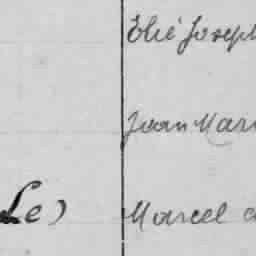 Elie Joseph
Jean Mari
Le) Marcel